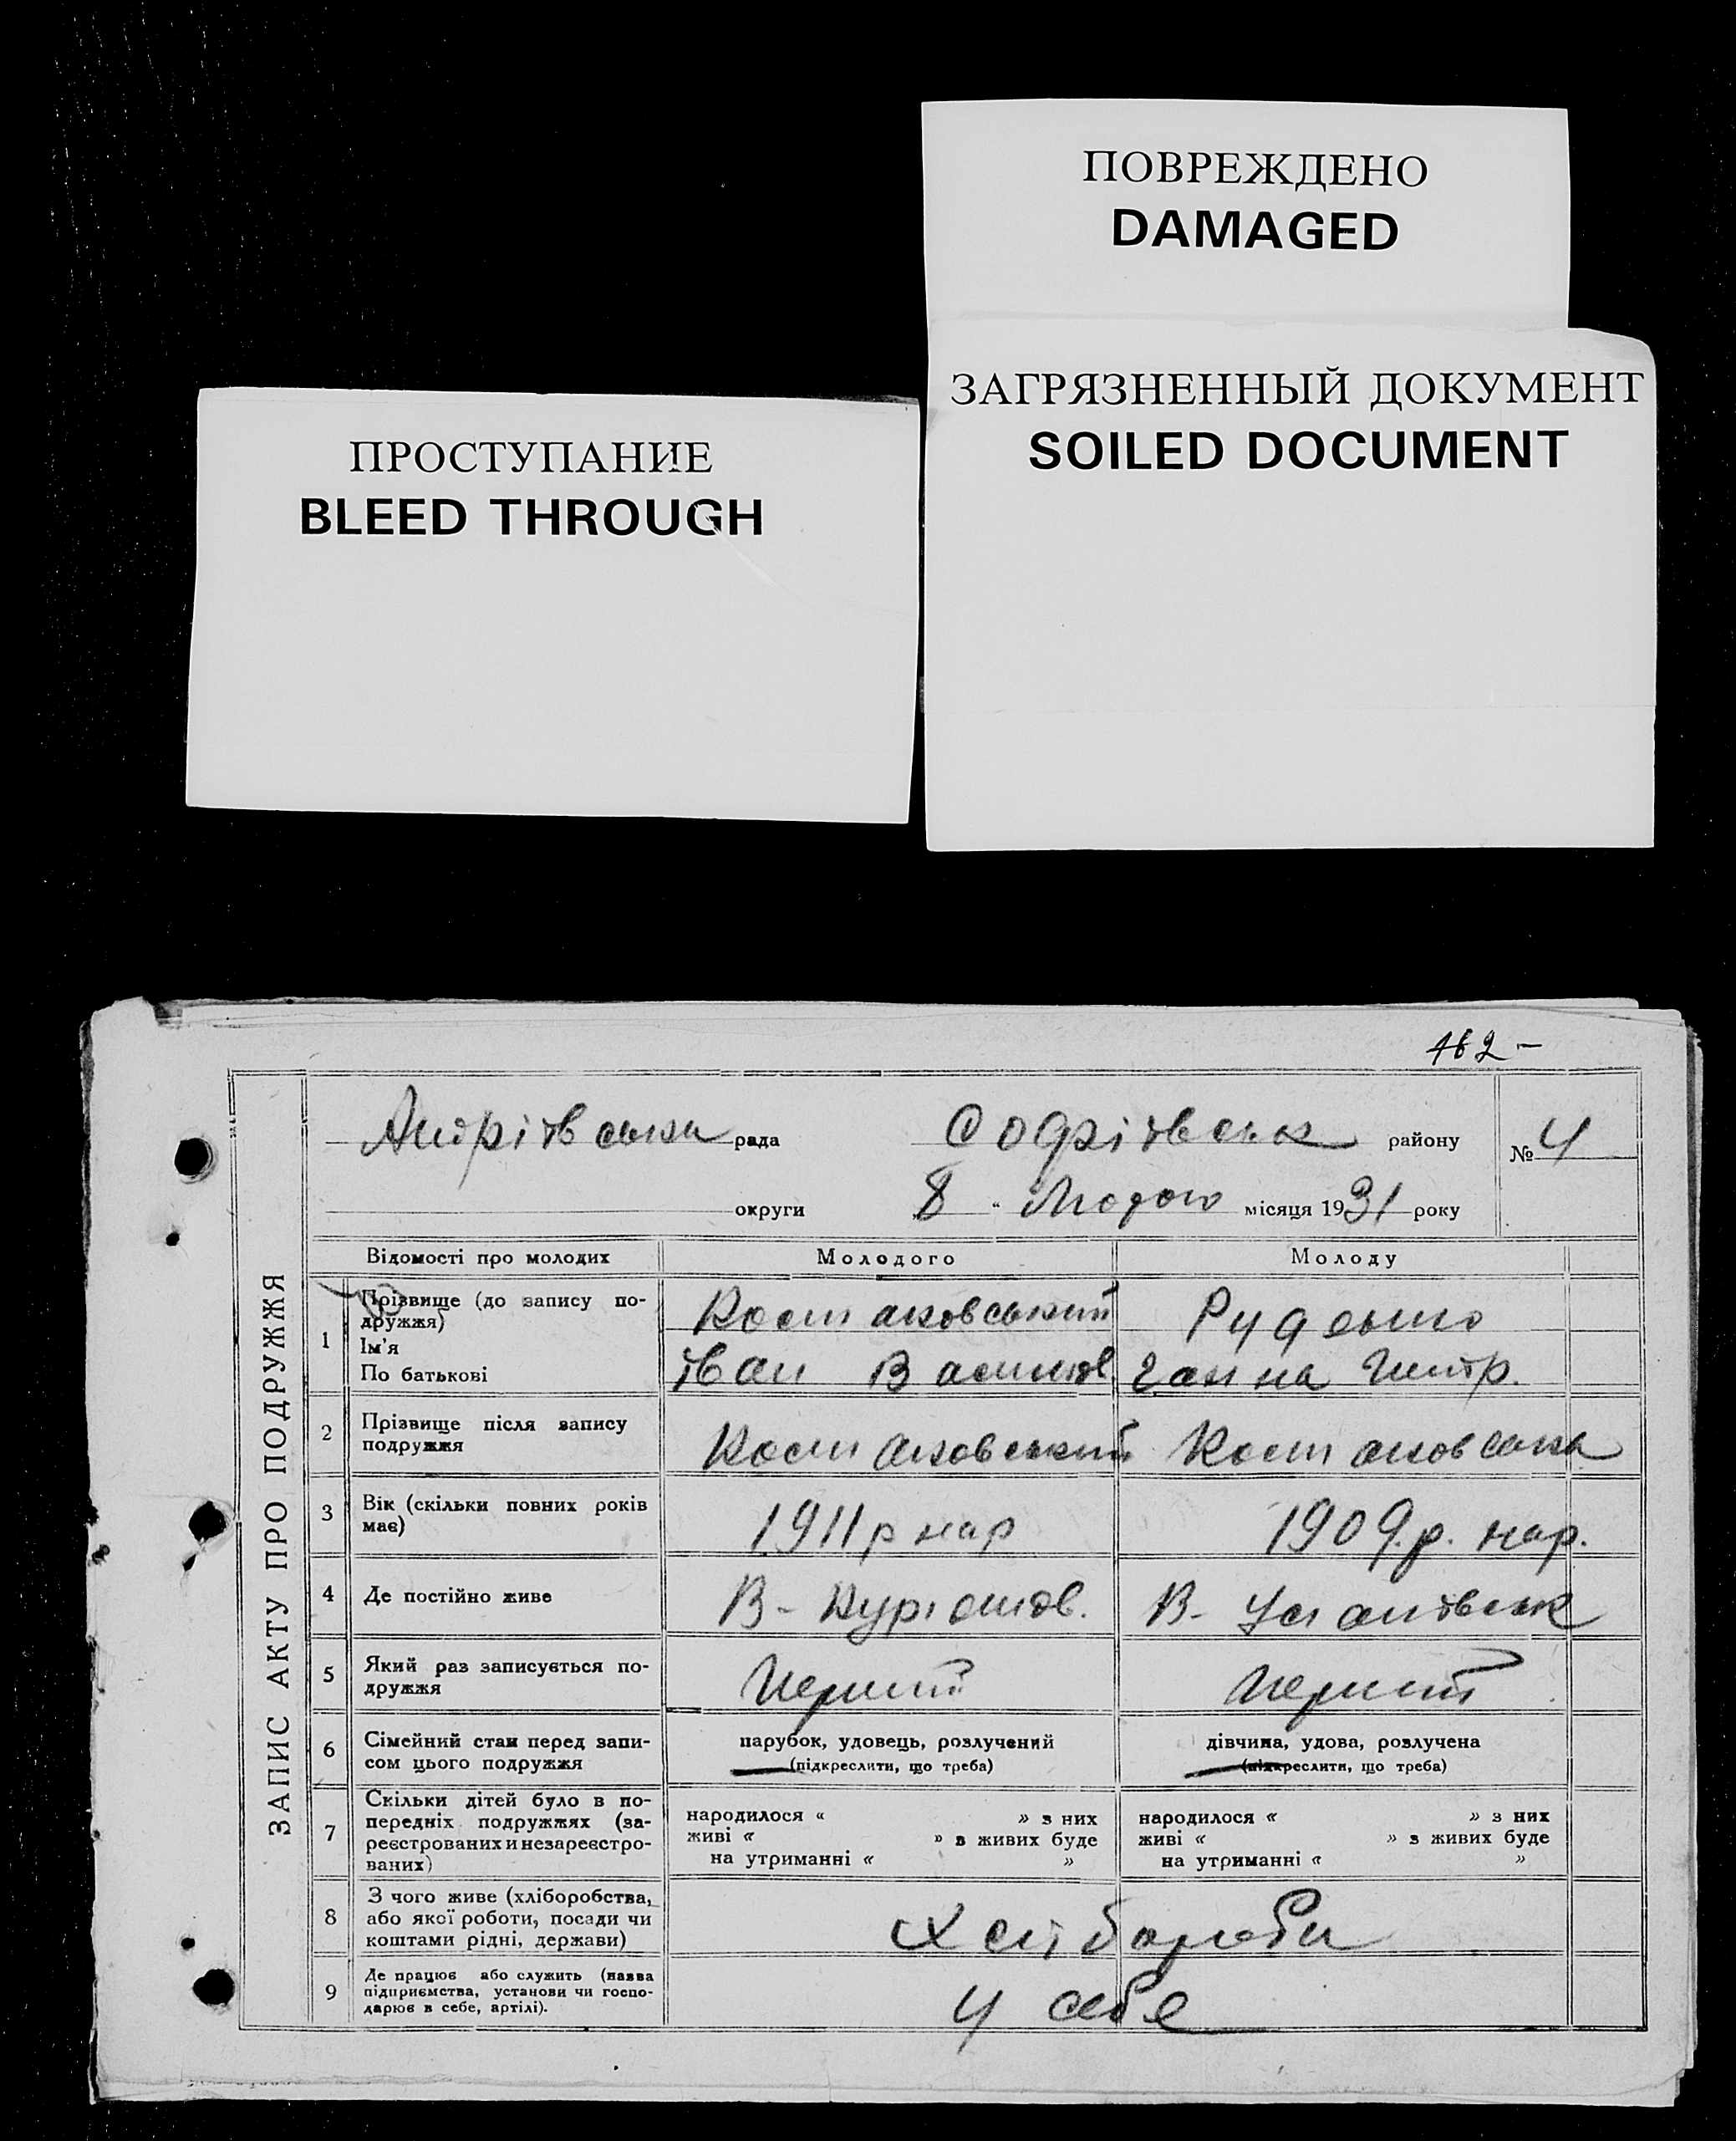 ПОВРЕЖДЕНО
DAMAGED
ЗАГРЯЗНЕННЫЙ ДОКУМЕНТ
SOILED DOCUMENT
ПРОСТУПАНИЕ
BLEED THROUGH
162 -
ЗАПИС АКТУ ПРО ПОДРУЖЖЯ
Андріївська рада Софіївськ району № 4
округи 8 " Лютого місяця 1931 року
Відомості про молодих Молодого Молоду
1 Прізвище (до запису по-
дружжя) Костаковський Руденко
Ім'я
По батькові Іван Васильов. Ганна Дмитр.
2 Прізвище після запису
подружжя Костаковський Костаковська
3 Вік (скільки повних років
має) 1911 р нар 1909. р. нар.
4 Де постійно живе В-
В-
5 Який раз записується по-
дружжя Перший Перший
6 Сімейний стан перед запи-
сом цього подружжя парубок, удовець, розлучений дівчина, удова, розлучена
(підкреслити, що треба) (підкреслити, що треба)
7 Скільки дітей було в по-
передніх подружжях (за-
реєстрованих и незареєстро-
ваних)
народилося « » з них народилося « » з них
живі « » в живих буде живі « » з живих буде
на утриманні « » на утриманні « »
8 З чого живе (хліборобства,
або якої роботи, посади чи
коштами рідні, держави) Хліборобы
9 Де працює або служить (назва
підприємства, установи чи госпо-
дарює в себе, артілі). У себе